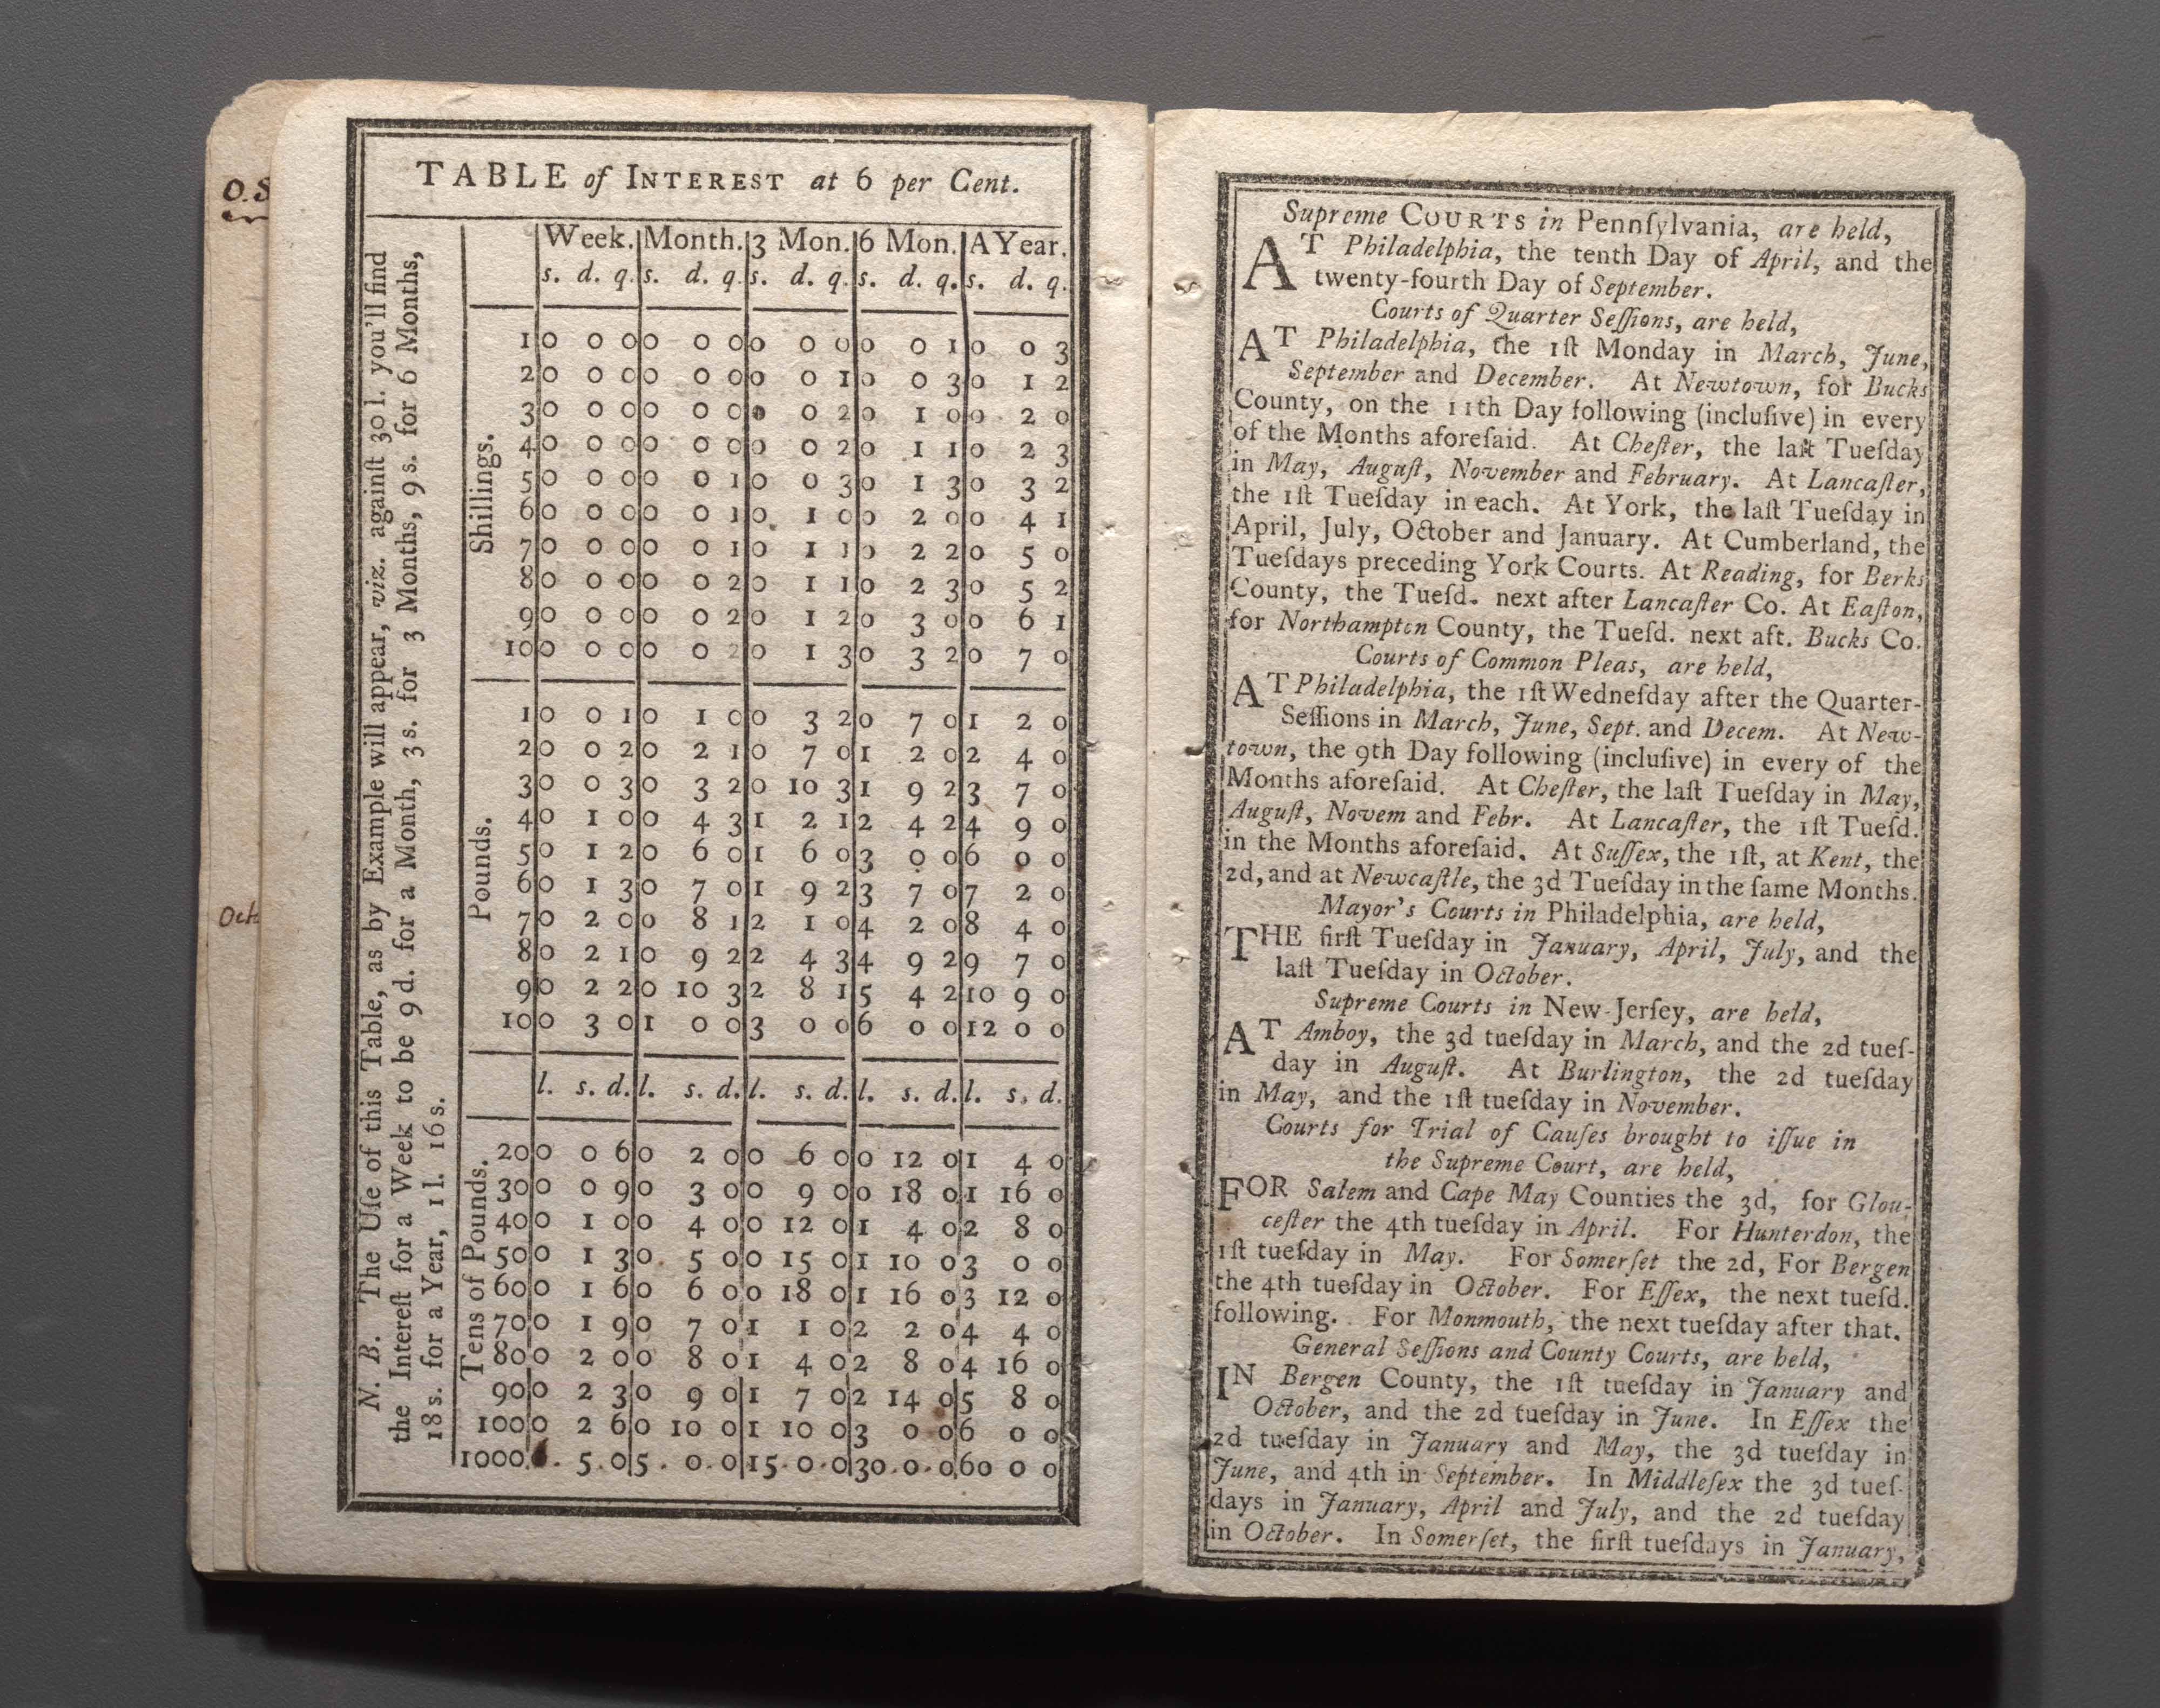 O.S
Oct
TABLE of INTEREST at 6 per Cent.
Week. Month. 3 Mon. 6 Mon. A Year.
s. d. q. s. d. q. s. d. q. s. d. q. s. d. q.
Shillings.
1 0 0 0 0 0 0 0 0 0 0 0 1 0 0 3
2 0 0 0 0 0 0 0 0 1 0 0 3 0 1 2
3 0 0 0 0 0 0 0 0 2 0 1 0 0 2 0
4 0 0 0 0 0 0 0 0 2 0 1 1 0 2 3
5 0 0 0 0 0 1 0 0 3 0 1 3 0 3 2
6 0 0 0 0 0 1 0 1 0 0 2 0 0 4 1
7 0 0 0 0 0 1 0 1 1 0 2 2 0 5 0
8 0 0 0 0 0 2 0 1 1 0 2 3 0 5 2
9 0 0 0 0 0 2 0 1 2 0 3 0 0 6 1
10 0 0 0 0 0 2 0 1 3 0 3 2 0 7 0
Pounds.
1 0 0 1 0 1 0 0 3 2 0 7 0 1 2 0
2 0 0 2 0 2 1 0 7 0 1 2 0 2 4 0
3 0 0 3 0 3 2 0 10 3 1 9 2 3 7 0
4 0 1 0 0 4 3 1 2 1 2 4 2 4 9 0
5 0 1 2 0 6 0 1 6 0 3 0 0 6 0 0
6 0 1 3 0 7 0 1 9 2 3 7 0 7 2 0
7 0 2 0 0 8 1 2 1 0 4 2 0 8 4 0
8 0 2 1 0 9 2 2 4 3 4 9 2 9 7 0
9 0 2 2 0 10 3 2 8 1 5 4 2 10 9 0
10 0 3 0 1 0 0 3 0 0 6 0 0 12 0 0
l. s. d. l. s. d. l. s. d. l. s. d. l. s. d.
Tens of Pounds.
20 0 0 6 0 2 0 0 6 0 0 12 0 1 4 0
30 0 0 9 0 3 0 0 9 0 0 18 0 1 16 0
40 0 1 0 0 4 0 0 12 0 1 4 0 2 8 0
50 0 1 3 0 5 0 0 15 0 1 10 0 3 0 0
60 0 1 6 0 6 0 0 18 0 1 16 0 3 12 0
70 0 1 9 0 7 0 1 1 0 2 2 0 4 4 0
80 0 2 0 0 8 0 1 4 0 2 8 0 4 16 0
90 0 2 3 0 9 0 1 7 0 2 14 0 5 8 0
100 0 2 6 0 10 0 1 10 0 3 0 0 6 0 0
1000 . 5 . 0 5 . 0 . 0 15 . 0 . 0 30 . 0 . 0 60 0 0
N. B. The Uſe of this Table, as by Example will appear, viz. againſt 30 l. you'll find
the Intereſt for a Week to be 9 d. for a Month, 3 s. for 3 Months, 9 s. for 6 Months,
18 s. for a Year, 1 l. 16 s.
Supreme COURTS in Pennſylvania, are held,
AT Philadelphia, the tenth Day of April, and the
twenty-fourth Day of September.
Courts of Quarter Seſſions, are held,
AT Philadelphia, the 1ſt Monday in March, June,
September and December. At Newtown, for Bucks
County, on the 11th Day following (incluſive) in every
of the Months aforeſaid. At Cheſter, the laſt Tueſday
in May, Auguſt, November and February. At Lancaſter,
the 1ſt Tueſday in each. At York, the laſt Tueſday in
April, July, October and January. At Cumberland, the
Tueſdays preceding York Courts. At Reading, for Berks
County, the Tueſd. next after Lancaſter Co. At Eaſton,
for Northampton County, the Tueſd. next aft. Bucks Co.
Courts of Common Pleas, are held,
AT Philadelphia, the 1ſt Wedneſday after the Quarter-
Seſſions in March, June, Sept. and Decem. At New-
town, the 9th Day following (incluſive) in every of the
Months aforeſaid. At Cheſter, the laſt Tueſday in May,
Auguſt, Novem and Febr. At Lancaſter, the 1ſt Tueſd.
in the Months aforeſaid. At Suſſex, the 1ſt, at Kent, the
2d, and at Newcaſtle, the 3d Tueſday in the ſame Months.
Mayor's Courts in Philadelphia, are held,
THE firſt Tueſday in January, April, July, and the
laſt Tueſday in October.
Supreme Courts in New-Jerſey, are held,
AT Amboy, the 3d tueſday in March, and the 2d tueſ-
day in Auguſt. At Burlington, the 2d tueſday
in May, and the 1ſt tueſday in November.
Courts for Trial of Cauſes brought to iſſue in
the Supreme Court, are held,
FOR Salem and Cape May Counties the 3d, for Glou-
ceſter the 4th tueſday in April. For Hunterdon, the
1ſt tueſday in May. For Somerſet the 2d, For Bergen
the 4th tueſday in October. For Eſſex, the next tueſd.
following. For Monmouth, the next tueſday after that.
General Seſſions and County Courts, are held,
IN Bergen County, the 1ſt tueſday in January and
October, and the 2d tueſday in June. In Eſſex the
2d tueſday in January and May, the 3d tueſday in
June, and 4th in September. In Middleſex the 3d tueſ-
days in January, April and July, and the 2d tueſday
in October. In Somerſet, the firſt tueſdays in January,